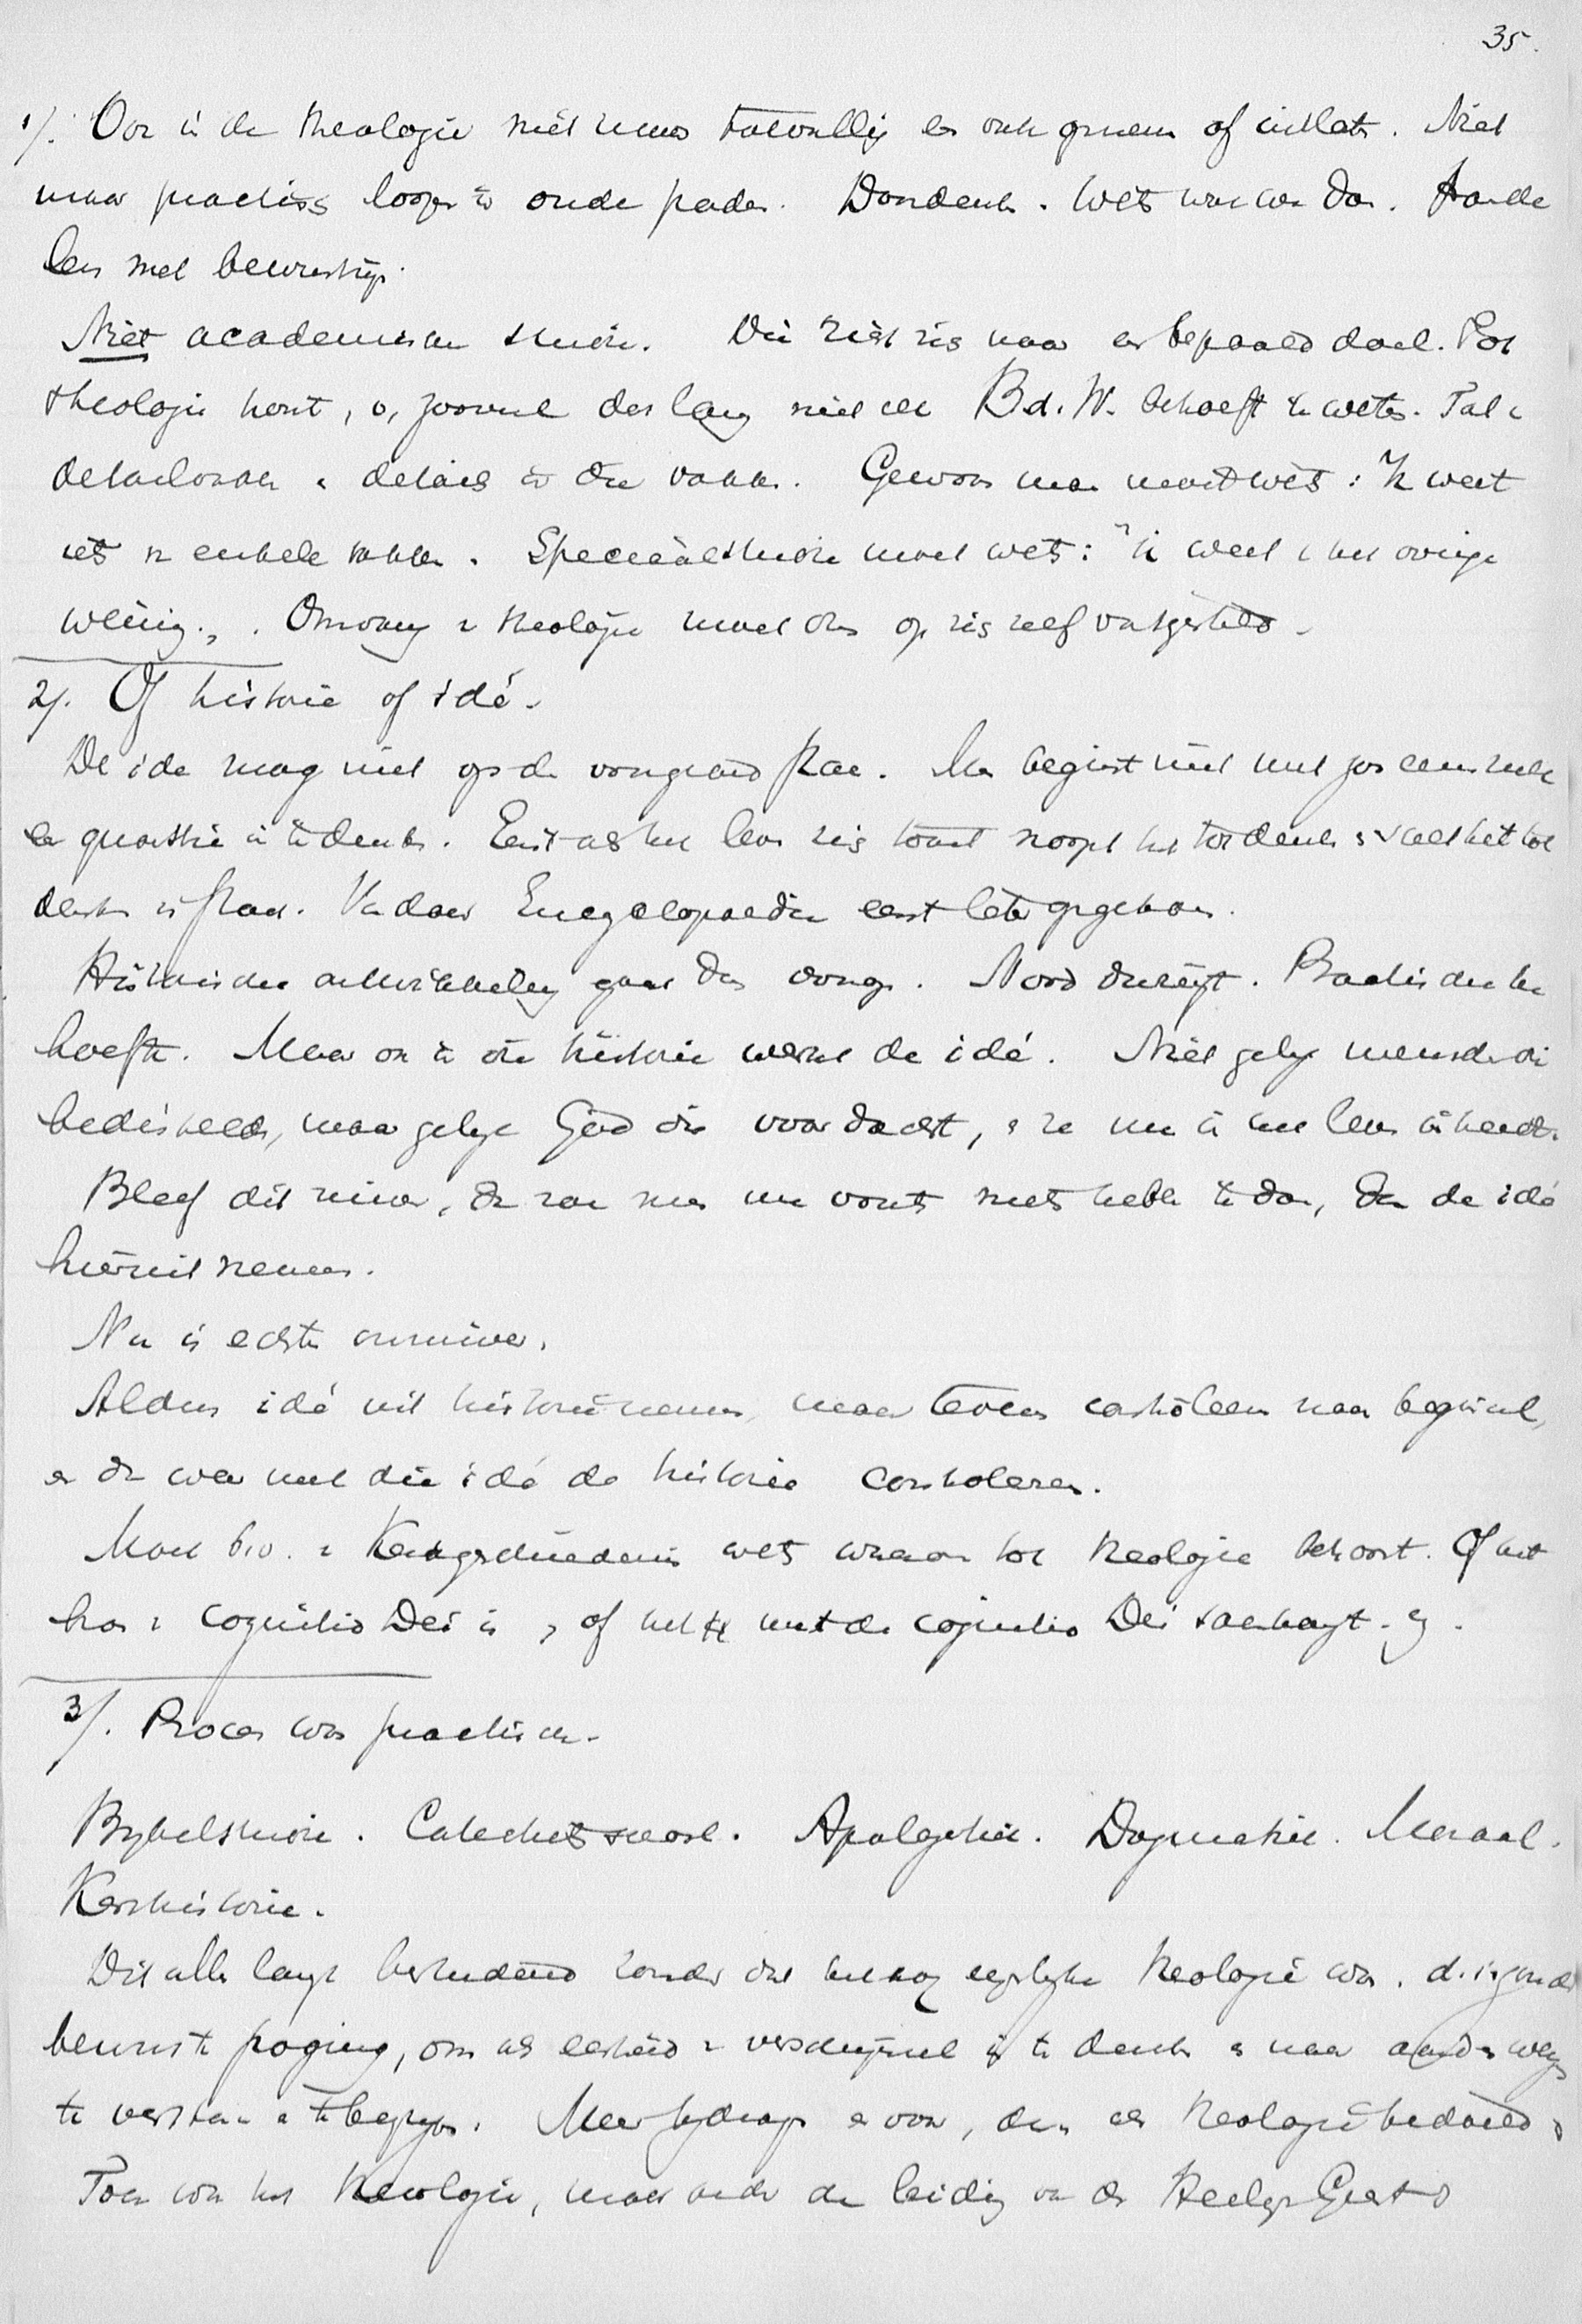 35.
1/. Ook in de theologie niet maar toevallig en onk of uitlaten. Niet
maar practisch loopen in oude paden. Doordenken. Weten wat we doen. Hande
len met bewustzijn.
Niet academische studie. Die richt zich naar een bepaald doel. Tot
theologie hoort, o, zooveel dat lang niet elk B.d.W. behoeft te weten. Tal v
detailvakken en details in die vakken. Gewoon man moet weten: Ik weet
iets v enkele vakken. Speciaalstudie moet weten: "ik weet v het overige
weinig". Omvang v theologie moet dus op zich zelf vastgesteld.
2/. Of historie of idé.
De idé mag niet op de voorgrond staan. Men begint niet met zoo eens zulk
een quaestie in te denken. Eerst als het leven zich toont noopt het tot denken en stelt het tot
denken in staat. Vandaar Encyclopaedie eerst later opgekomen.
Historische ontwikkeling gaat dus voorop. Nood dringt. Practische be
hoefte. Maar ook in die historie werkt de idé. Niet gelijk menschen die
bedisselden, maar gelijk God die voordacht, en ze nu in het leven inheeft.
Bleef dit zuiver, dan zou men nu voorts niets hebben te doen, dan de idé
hieruit nemen.
Nu is echter onzuiver.
Aldus idé uit historie nemen, maar tevens controleeren naar beginsel,
en dan weer met die idé de historie controleren.
Moet bv. v Kerkgeschiedenis weten waarom tot theologie behoort. Of het
bron v cognitio Dei is, of het met de cognitio Dei samenhangt.
3/. Proces was practisch.
Bijbelstudie. Catechetenschool. Apologetiek. Dogmatiek. Moraal.
Kerkhistorie.
Dit alles langs bestudeerd zonder dat het nog eigenlijke theologie was. d.i. zonder
bewuste poging, om als eenheid v verschijnsel in te denken en naar aard en wezen
te verstaan en te begrijpen. Meer bijdrage er voor, dan als theologie bedoeld.
Toch was het theologie, maar onder de leiding van den Heiligen Geest